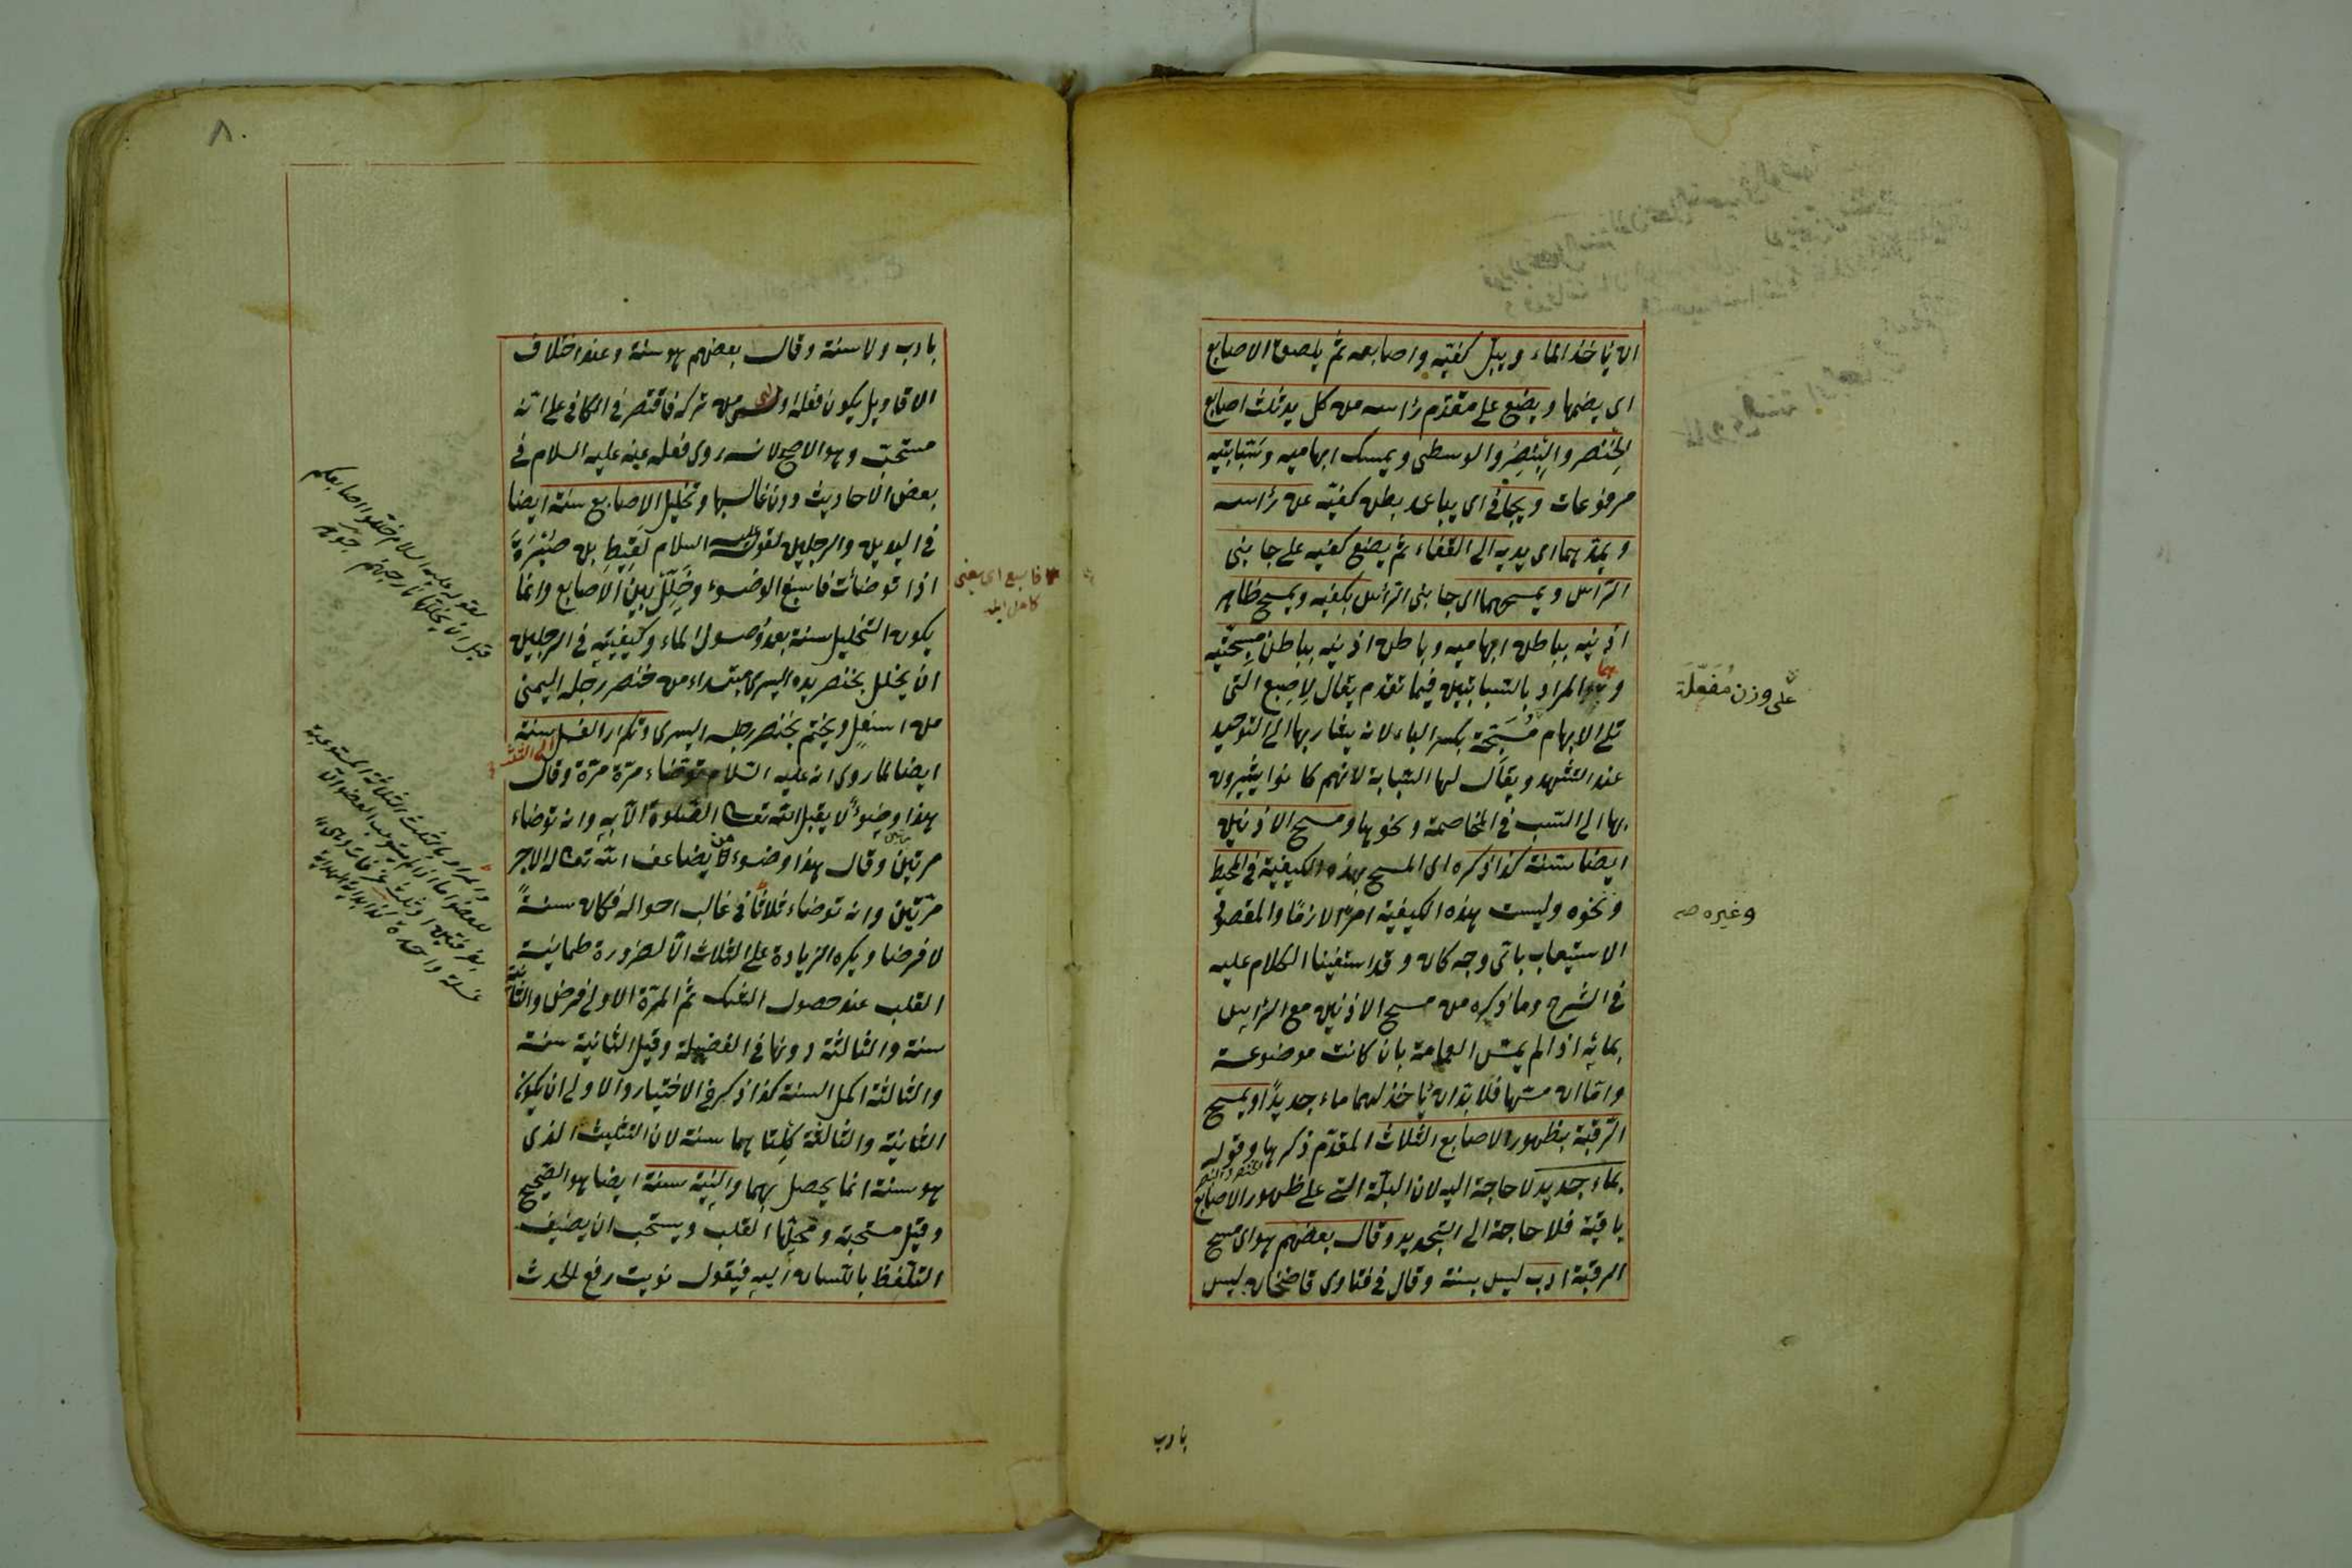 ان ياخذ الماء ويبل كفيه واصابعه ثم يلصق الاصابع
اى يضمها ويضع على مقدم رأسه من كل يد ثلث اصابع
الخنصر والبنصر والوسطى ويمسك ابهاميه وسبابتيه
مرفوعات ويجافى اى يباعد بطن كفيه عن رأسه
ويمدهما اى يديه الى القفاء ثم يضع كفيه على جانبى
الرأس ويمسحهما اى جانبى الرأس بكفيه ويمسح ظاهر
اذنيه بباطن ابهاميه وباطن اذنيه بباطن مسبحتيه
وهما المراد بالسبابتين فيما تقدم يقال لاصبع التى
تلى الابهام مُسَبِّحة بكسر الباء لانه يشار بها الى التوحيد
عند التشهد ويقال لها السبابة لانهم كانوا يشيرون
بها الى السب فى المخاصمة ونحوها ومسح الاذنين
ايضا سنة كذا ذكره اى المسح بهذه الكيفية فى المحيط
ونحوه وليست هذه الكيفية امرًا لازمًا والمقصود
الاستيعاب باى وجه كان وقد استفينا الكلام عليه
فى الشرح وما ذكره من مسح الاذنين مع الرأس
بمائه اذا لم يمس العمامة بان كانت موضوعة
واما ان مسها فلا بد ان يأخذ لهما ماء جديدًا ويمسح
الرقبة بظهور الاصابع الثلاث المقدم ذكرها وقوله
بماء جديد لا حاجة اليه لان البلة التى على ظهور الاصابع
باقية فلا حاجة الى التجديد وقال بعضهم هو اى مسح
الرقبة ادب ليس بسنة وقال فى فتاوى قاضخان ليس
على وزن مُفَعِّلَة
وغيره صح
بادب
٨
بادب ولا سنة وقال بعضهم هو سنة وعند اختلاف
الاقاويل يكون فعله اولى من تركه فاقتصر فى الكافى على انه
مستحب وهو الاصح لانه روى فعله عنه عليه السلام فى
بعض الاحاديث دون غالبها وتخليل الاصابع سنة ايضا
فى اليدين والرجلين لقوله عليه السلام لقيط بن صبرة
اذا توضأت فاسبغ الوضوء وخلّل بين الاصابع وانما
يكون التخليل سنة بعد وصول الماء وكيفيته فى الرجلين
ان يخلل بخنصر يده اليسرى مبتداء من خنصر رجله اليمنى
من اسفل ويختم بخنصر رجله اليسرى وتكرار الغسل سنة
الى الثلث
ايضا لما روى انه عليه السلام توضاء مرة مرة وقال
هذا وضوء لا يقبل الله تعالى الصلوة الا به وانه توضاء
مرتين وقال هذا وضوء من يضاعف الله تعالى له الاجر
مرتين وانه توضاء ثلاثا فى غالب احواله فكان سنةً
لا فرضا ويكره الزيادة على الثلاث الا لضرورة طمانينة
القلب عند حصول الشك ثم المرة الاولى فرض والثانية
سنة والثالثة دونها فى الفضيلة وقيل الثانية سنة
والثالثة اكمل السنة كذا ذكر فى الاختيار والاولى ان يكون
الثانية والثالثة كلتاهما سنة لان التثليث الذى
هو سنة انما يحصل بهما والنية سنة ايضا هو الصحيح
وقيل مستحبة ومحلها القلب ويستحب ان يضيف
التلفظ باللسان اليه فيقول نويت رفع الحدث
فاسبغ اى يعنى
لقوله عليه السلام خللوا اصابعكم
قبل ان يخللها نار جهنم